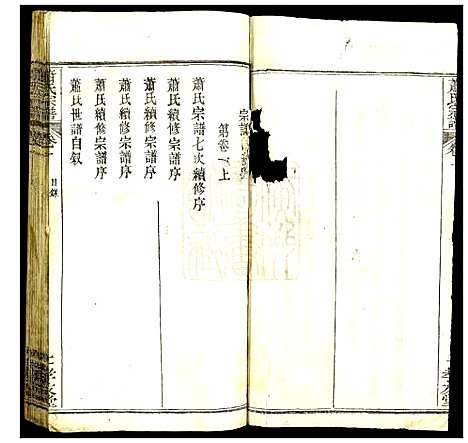 蕭氏宗譜
卷一
宗譜
第卷一上
蕭氏宗譜七次續修序
蕭氏續修宗譜序
蕭氏續修宗譜序
蕭氏續修宗譜序
蕭氏世譜自叙
蕭氏宗譜
卷一
目錄